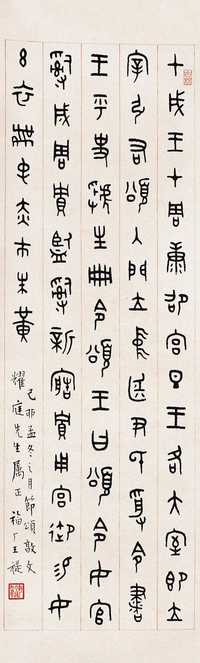 甲戌王才周康卲宮旦王各大室即立
宰弘右頌入門立中廷尹氏受令書
王乎史虢生冊令頌王曰頌令女官
𤔲成周貯監𤔲新造貯用宮御易女
玄衣黹屯赤巿朱黃
己卯孟冬之月節頌敦文
耀庭先生屬正 福厂王禔